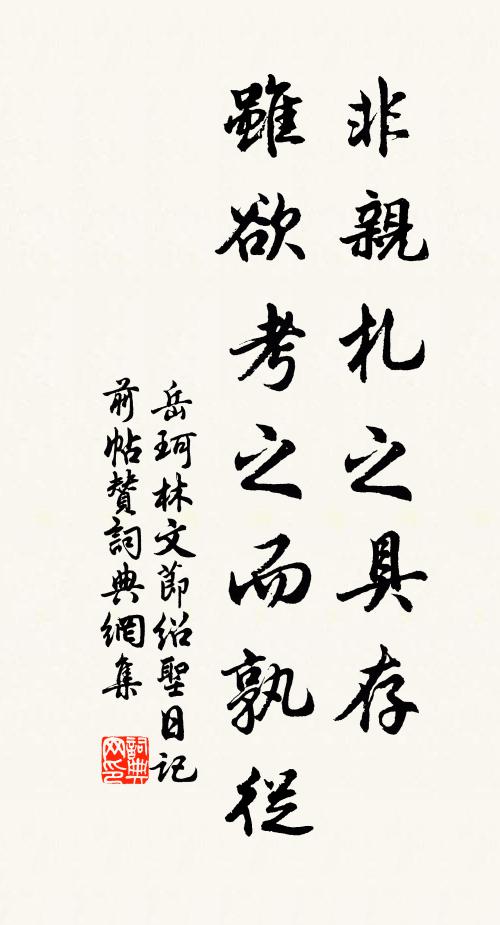 非親札之具存
雖欲考之而孰從
岳珂林文節紹聖日記
前帖贊詞典網集
詞典網印